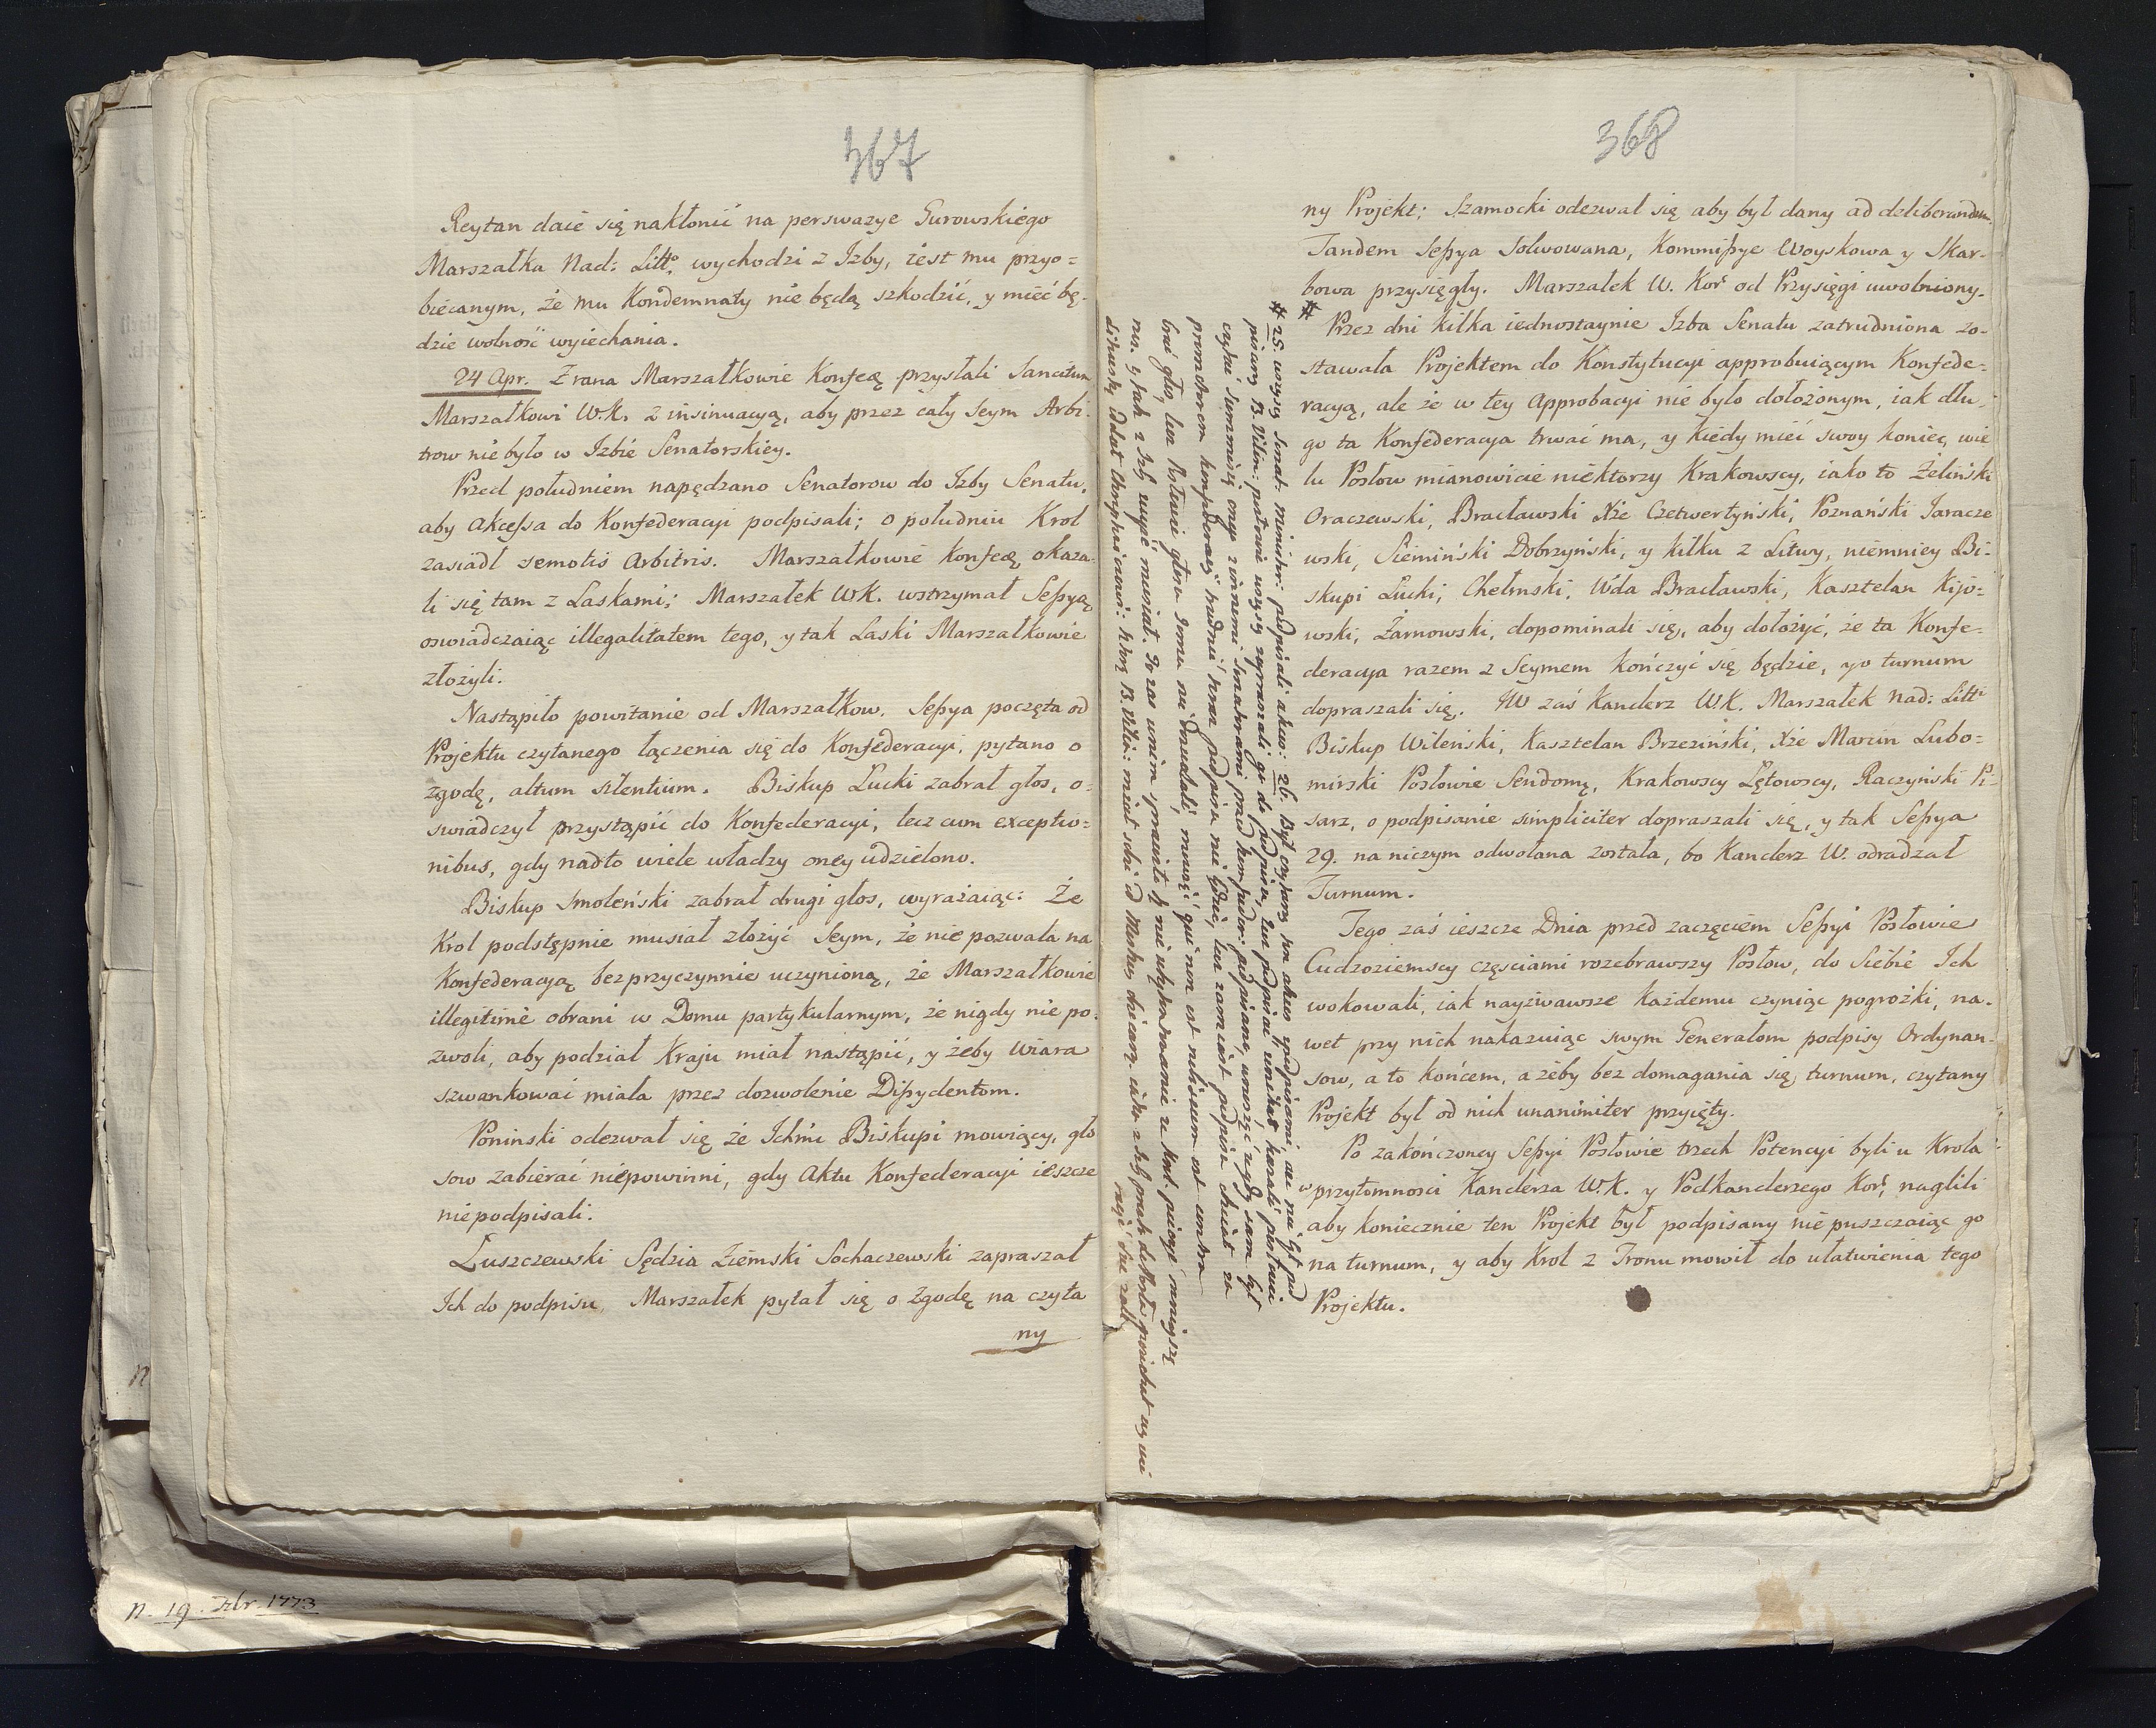 367
Reytan daie się nakłonić na perswazye Gurowskiego
Marszałka Nad: Litt°, wychodzi z Izby, iest mu przyo=
biecanym, że mu Kondemnaty nie będą szkodzić, y mieć bę-
dzie wolność wyiechania.
24 Apr. Zrana Marszałkowie Konfeą przysłali Sancitum
Marszałkowi W.K. z insinuacyą, aby przez cały Seym Arbi-
trow nie było w Izbie Senatorskiey.
Przed południem napędzano Senatorow do Izby Senatu,
aby Akcessa do Konfederacyi podpisali; o południu Krol
zasiadł semotis Arbitris. Marszałkowie Konfeą okaza-
li się tam z Laskami; Marszałek WK. wstrzymał Sessyą
oswiadczaiąc illegalitatem tego, y tak Laski Marszałkowie
złożyli.
Nastąpiło powitanie od Marszałkow. Sessya poczęta od
Projektu czytanego łączenia się do Konfederacyi, pytano o
zgodę, altum silentium. Biskup Łucki zabrał głos, o=
swiadczył przystąpić do Konfederacyi, lecz cum exceptio=
nibus, gdy nadto wiele władzy oney udzielono.
Biskup Smoleński zabrał drugi głos, wyrażaiąc: Że
Krol podstępnie musiał złożyć Seym, że nie pozwala na
Konfederacyą bezprzyczynnie uczynioną, że Marszałkowie
illegitimè obrani w Domu partykularnym, że nigdy nie po-
zwoli, aby podział Kraju miał nastąpić, y żeby Wiara
szwankować miała przez dozwolenie Dissydentom.
Poninski odezwał się że Ichmć Biskupi mowiący, gło
sow zabierać niepowinni, gdy Aktu Konfederacyi ieszcze
niepodpisali.
Łuszczewski Sędzia Ziemski Sochaczewski zapraszał
Ich do podpisu, Marszałek pytał się o Zgodę na czyta
ny
n. 19. Xbr. 1773
368
ny Projekt; Szamocki odezwał się aby był dany ad deliberandum.
Tandem Sessya Solwowana, Kommissye Woyskowa y Skar-
bowa przysięgły. Marszałek W. Kor. od Przysięgi uwolniony.
#
Przez dni kilka iednostaynie Izba Senatu zatrudniona zo-
stawała Projektem do Konstytucyi approbuiącym Konfede-
racyą, ale że w tey Approbacyi nie było dołożonym, iak dłu-
go ta Konfederacya trwać ma, y kiedy mieć swoy koniec, wie
lu Posłow mianowicie niektorzy Krakowscy, iako to Żeliński
Oraczewski, Bracławski Xże Czetwertyński, Poznański Jaracze
wski, Siemiński Dobrzyński, y kilku z Litwy, niemniey Bi-
skupi Łucki, Chełmski, Wda Bracławski, Kasztelan Kijo=
wski, Żarnowski, dopominali się, aby dołożyć, że ta Konfe-
deracya razem z Seymem kończyć się będzie, y o turnum
dopraszali się. IW zaś Kanclerz WK. Marszałek Nad: Litt
Biskup Wileński, Kasztelan Brzeziński, Xże Marcin Lubo=
mirski Posłowie Sendomą, Krakowscy Łętowscy, Raczyński Pi-
sarz, o podpisanie simpliciter dopraszali się, y tak Sessya
29. na niczym odwołana została, bo Kanclerz W. odradzał
Turnum.
Tego zaś ieszcze Dnia przed zaczęciem Sessyi Posłowie
Cudzoziemscy częsciami rozebrawszy Posłow, do Siebie Ich
wokowali, iak nayżwawsze każdemu czyniąc pogrożki, na-
wet przy nich nakazuiąc swym Generałom podpisy Ordynan-
sow, a to końcem, a żeby bez domagania się turnum, czytany
Projekt był od nich unanimiter przyięty.
Po zakończoney Sessyi Posłowie trzech Potencyi byli u Krola
w przytomnosci Kanclerza W.K. y Podkanclerzego Kor, naglili
aby koniecznie ten Projekt był podpisany nie puszczaiąc go
na turnum, y aby Krol z Tronu mowił do ułatwienia tego
Projektu.
# 25. wszyscy Senat: ministri podpisali akces: 26. Był czytany ten akces z podpisami, ale nie był pod
pisany B. Vilen: posłowie wszyscy
promotorem konfederacyi
brać głos, lecz Posłowie głosu Jemu nie dozwalali, mowiąc qui non est nobiscum est contra
nos. y tak z Izby